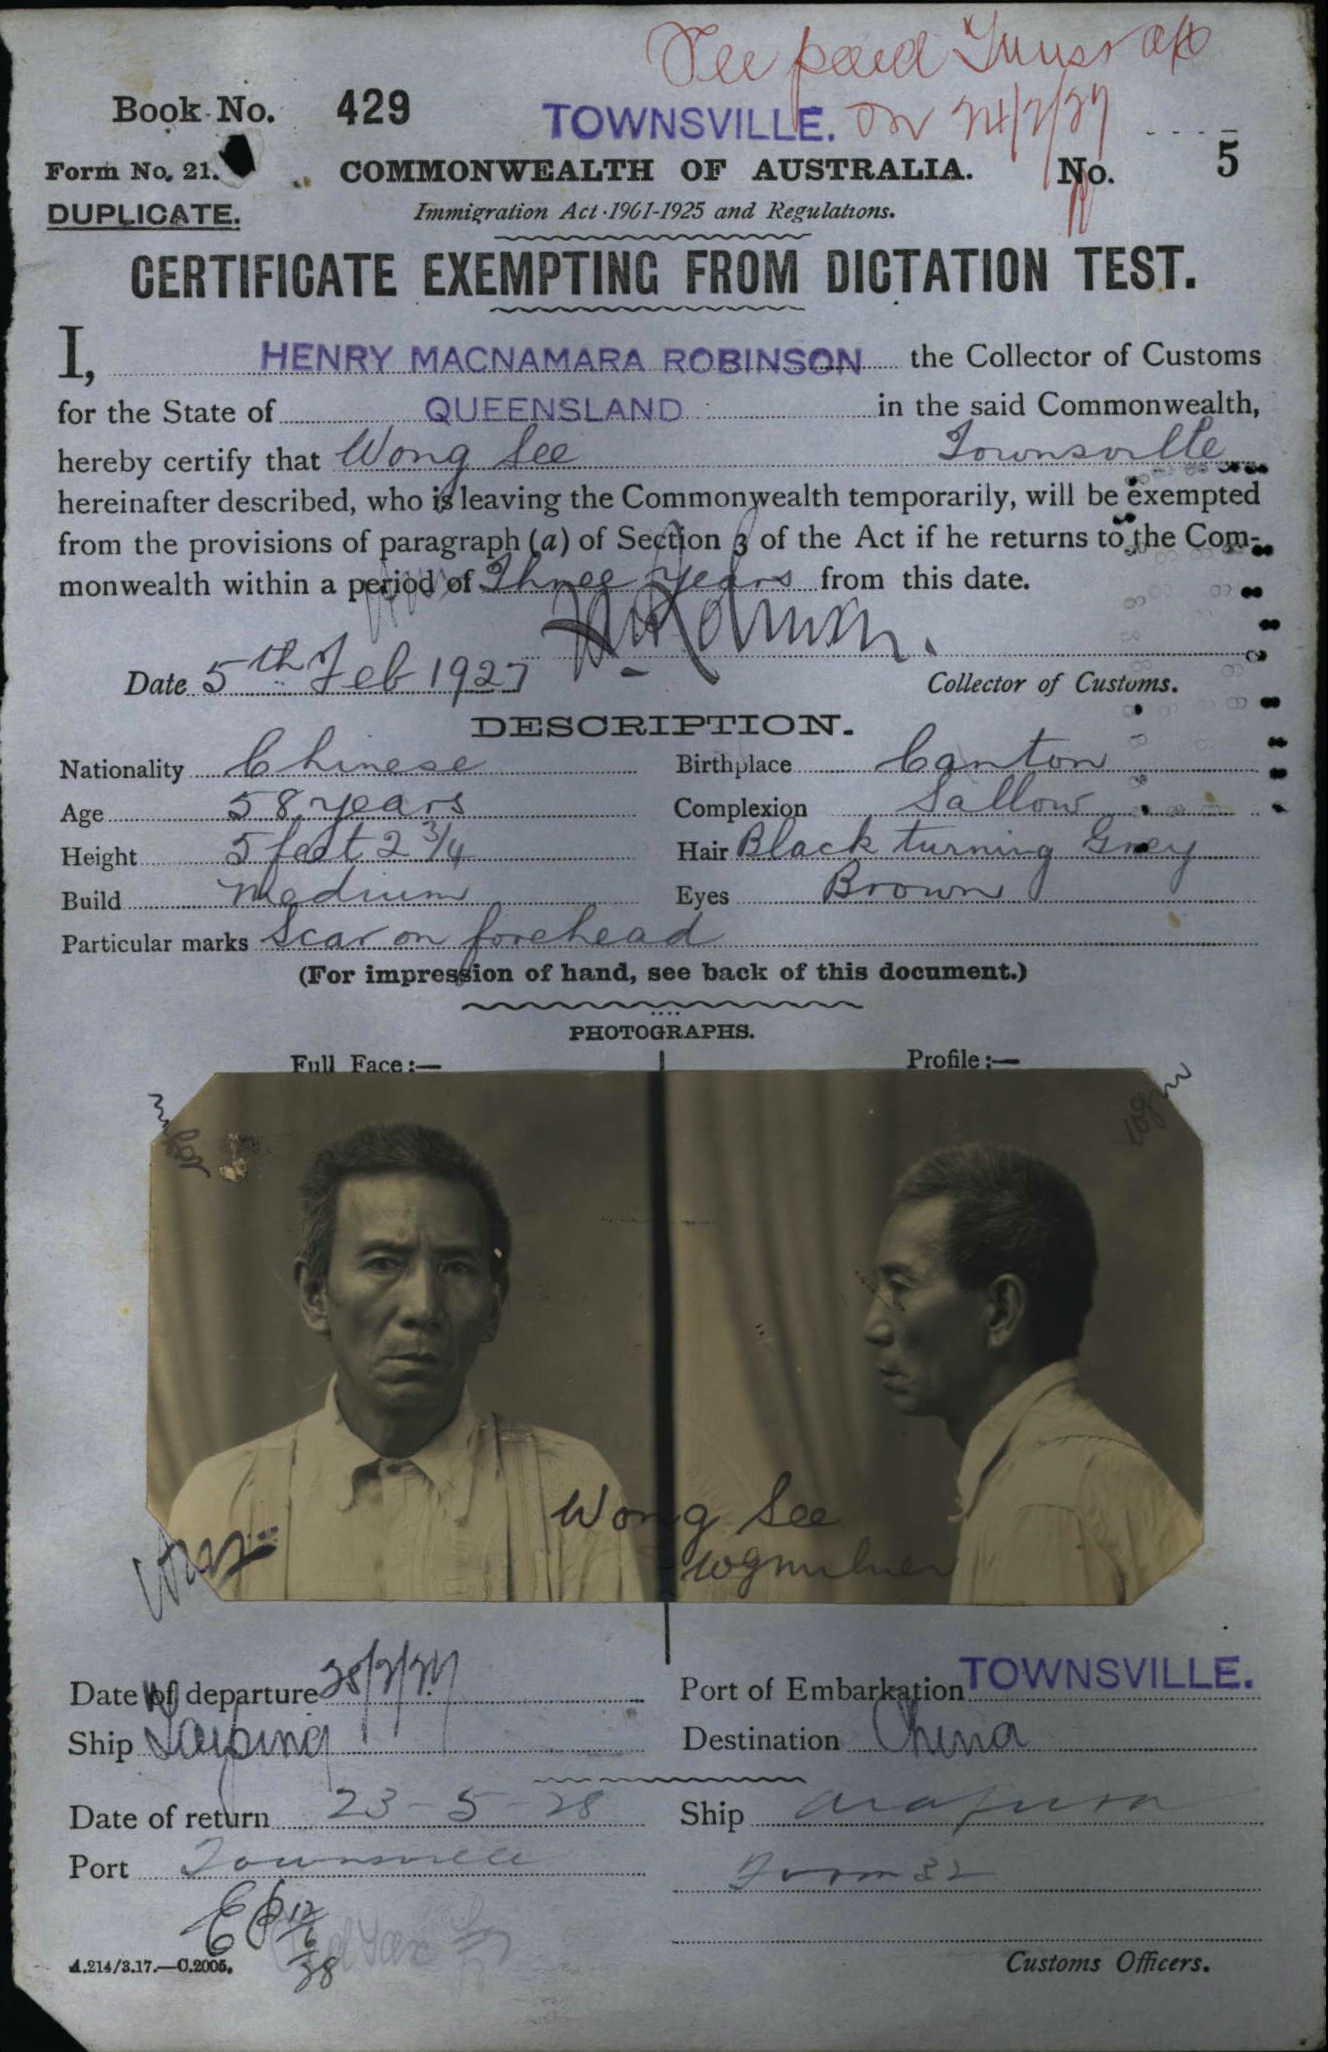 See paid
on 24/2/27
Book No. 429
TOWNSVILLE.
Form No. 21.
COMMONWEALTH OF AUSTRALIA.
No. 5
DUPLICATE.
Immigration Act 1901-1925 and Regulations.
CERTIFICATE EXEMPTING FROM DICTATION TEST.
I, HENRY MACNAMARA ROBINSON the Collector of Customs
for the State of QUEENSLAND in the said Commonwealth,
hereby certify that Wong See Townsville
hereinafter described, who is leaving the Commonwealth temporarily, will be exempted
from the provisions of paragraph (a) of Section 3 of the Act if he returns to the Com-
monwealth within a period of Three years from this date.
Date 5th Feb 1927
Collector of Customs.
DESCRIPTION.
Nationality Chinese Birthplace Canton
Age 58 years Complexion Sallow
Height 5 feet 2 3/4 Hair Black turning Grey
Build Medium Eyes Brown
Particular marks Scar on forehead
(For impression of hand, see back of this document.)
PHOTOGRAPHS.
Full Face:— Profile:—
Wong See
wgmilner
Date of departure 28/2/27 Port of Embarkation TOWNSVILLE.
Ship Taiping Destination China
Date of return 23-5-28 Ship Arafura
Port Townsville Form 32
12/6/28
A.214/3.17.—C.2005. Customs Officers.